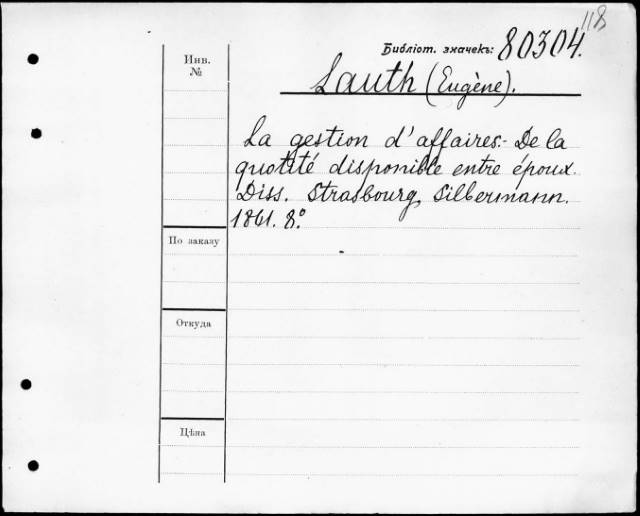 118
Библіот. значекъ: 80304.
Инв.
№
Lauth (Eugène).
La gestion d'affaires.- De la
quotité disponible entre époux.
Diss. Strasbourg, Silbermann.
1861. 8.º
По заказу
Откуда
Цѣна